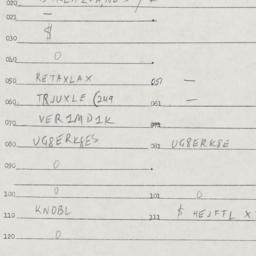 020
021 —
$
030
0
050 RETAXLAX 051 —
060 TRJUXLE (249 061 —
070 VER1MD1K
080 UG8ERK8ES 081 UG8ERK8E
090 0
100 0 101 0
110 KNOBL 111 $ HEJFTL X
120 0